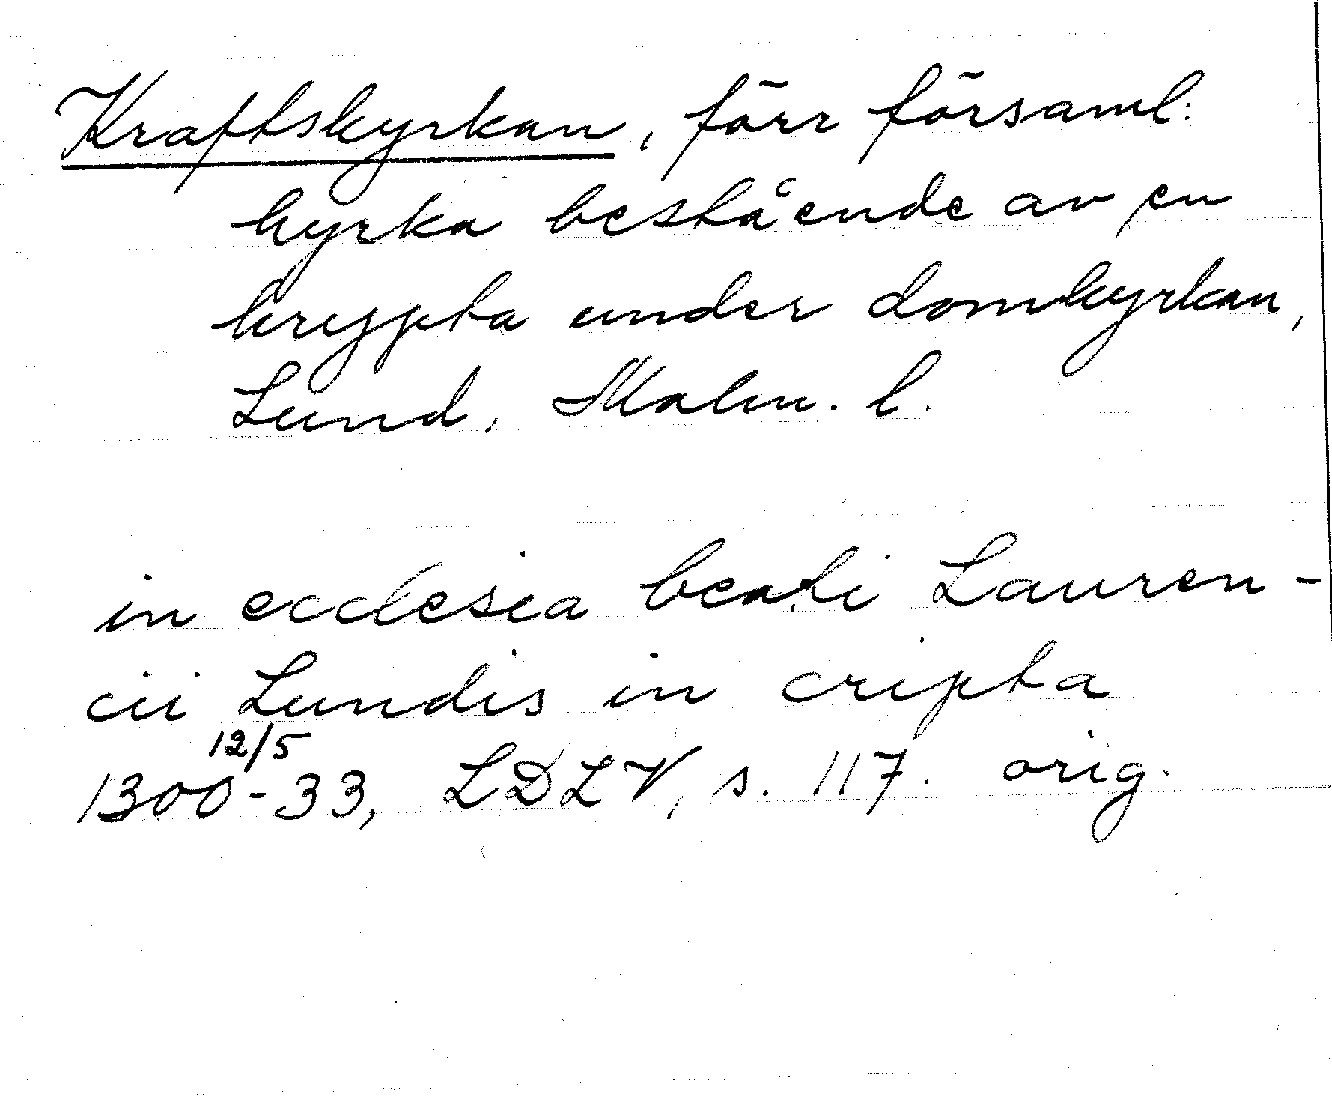 Kraftskyrkan, förr församl.
kyrka bestående av en
krypta under domkyrkan,
Lund, Malm. l.
in ecclesia beati Lauren-
cii Lundis in cripta
12/5
1300-33, LDLV, s. 117. orig.